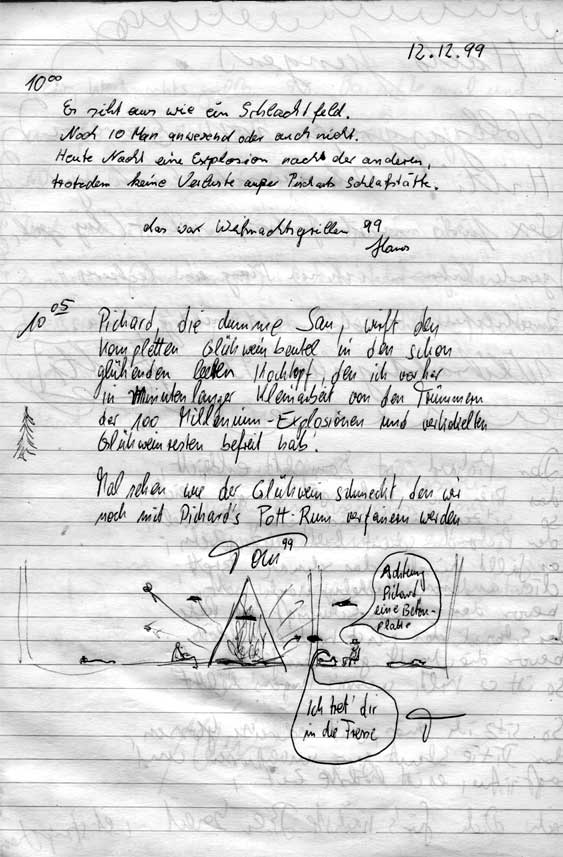 12.12.99
10⁰⁰
Es sieht aus wie ein Schlachtfeld.
Noch 10 Man anwesend oder auch nicht.
Heute Nacht eine Explosion nach der anderen,
trotzdem keine Verluste außer Pichards Schlafstätte.
das war Weihnachtsgrillen 99
Hans
10⁰⁵
Pichard, die dumme Sau, wirft den
kompletten Glühweinbeutel in den schon
glühenden leeren Kochtopf, den ich vorher
in minutenlanger Kleinarbeit von den Trümmern
der 100 Millenium-Explosionen und verkohlten
Glühweinresten befreit hab'.
Mal sehen wie der Glühwein schmeckt, den wir
noch mit Pichard's Pott-Rum verfeinern werden
Tom 99
Achtung
Pichard
eine Beton-
platte
Ich tret' dir
in die Fresse
T